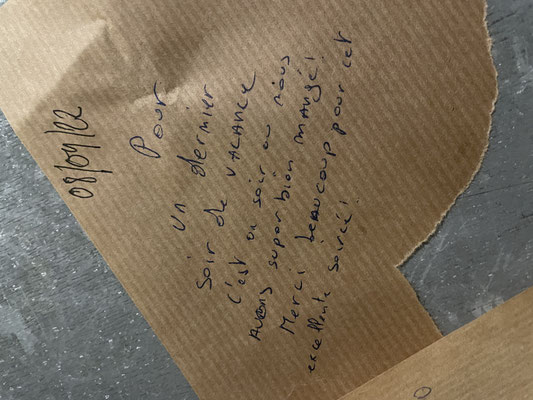 08/09/22
Pour
un dernier
soir de vacance
c'est un soir ou nous
avons super bien mangé!
Merci beaucoup pour cet
excellente soirée!